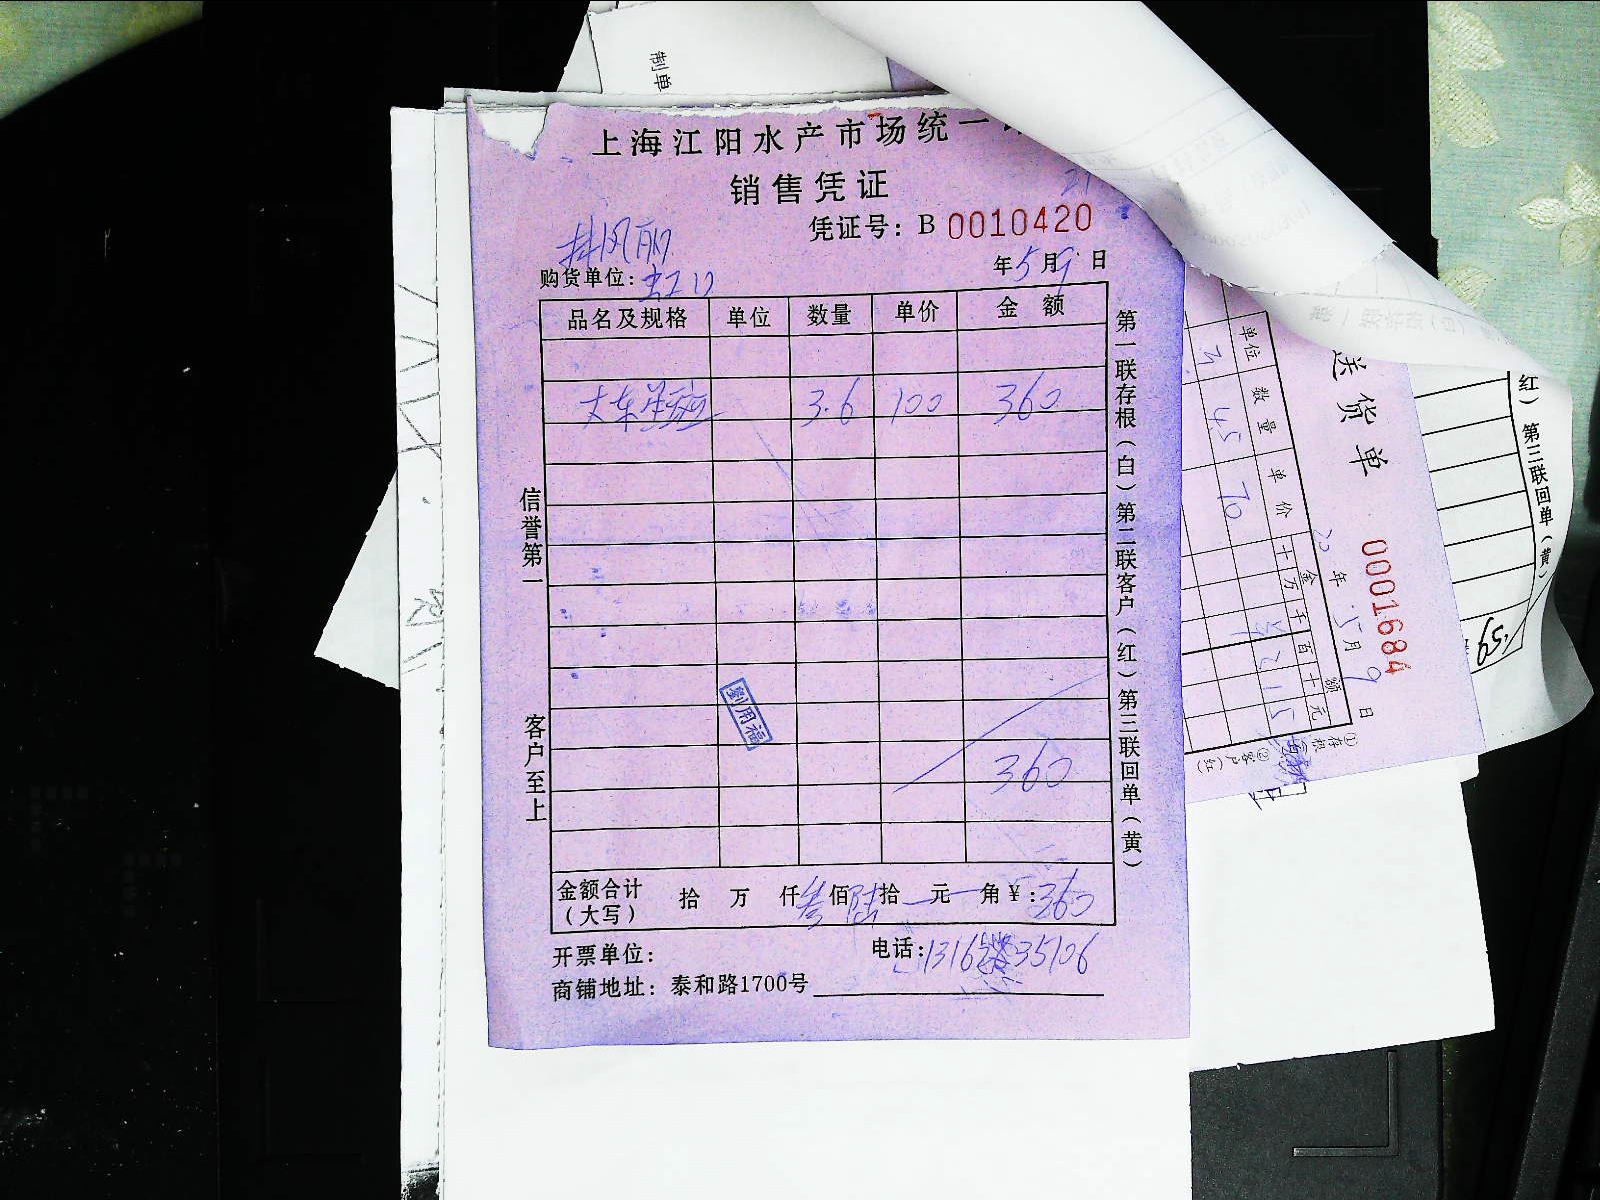 制单
上海江阳水产市场统一
销售凭证
凭证号：B 0010420
购货单位：虹口
年5月9日
品名及规格 单位 数量 单价 金额
3.6 100 360
360
金额合计（大写） 拾 万 仟叁佰陆拾 元 角￥：360
开票单位：
电话：
商铺地址：泰和路1700号
信誉第一
客户至上
第一联存根（白）第二联客户（红）第三联回单（黄）
刘用福
送货单
0001684
20 年5月9日
单位 数量 单价 金额
十万千百十元
45 70
①存根 ②客户（红）
红）第三联回单（黄）